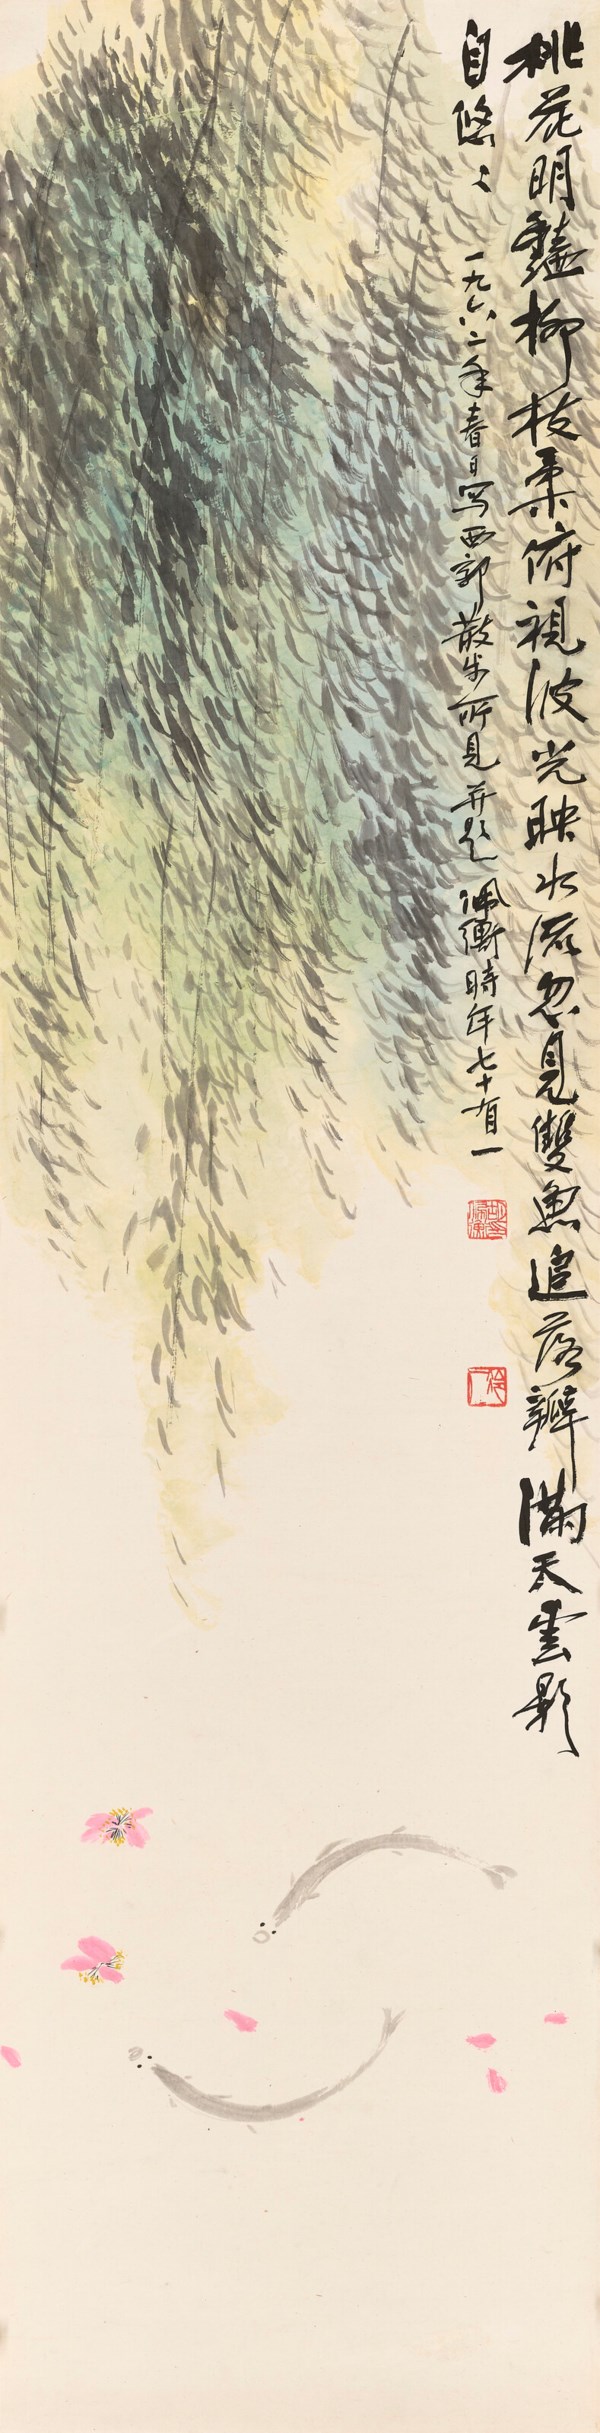 桃花明豔柳枝柔俯視波光映水流忽見雙魚追落瓣滿天雲影
自悠〻
一九六二年春日写西郭散步所見并題佩衡時年七十有一
冷厂